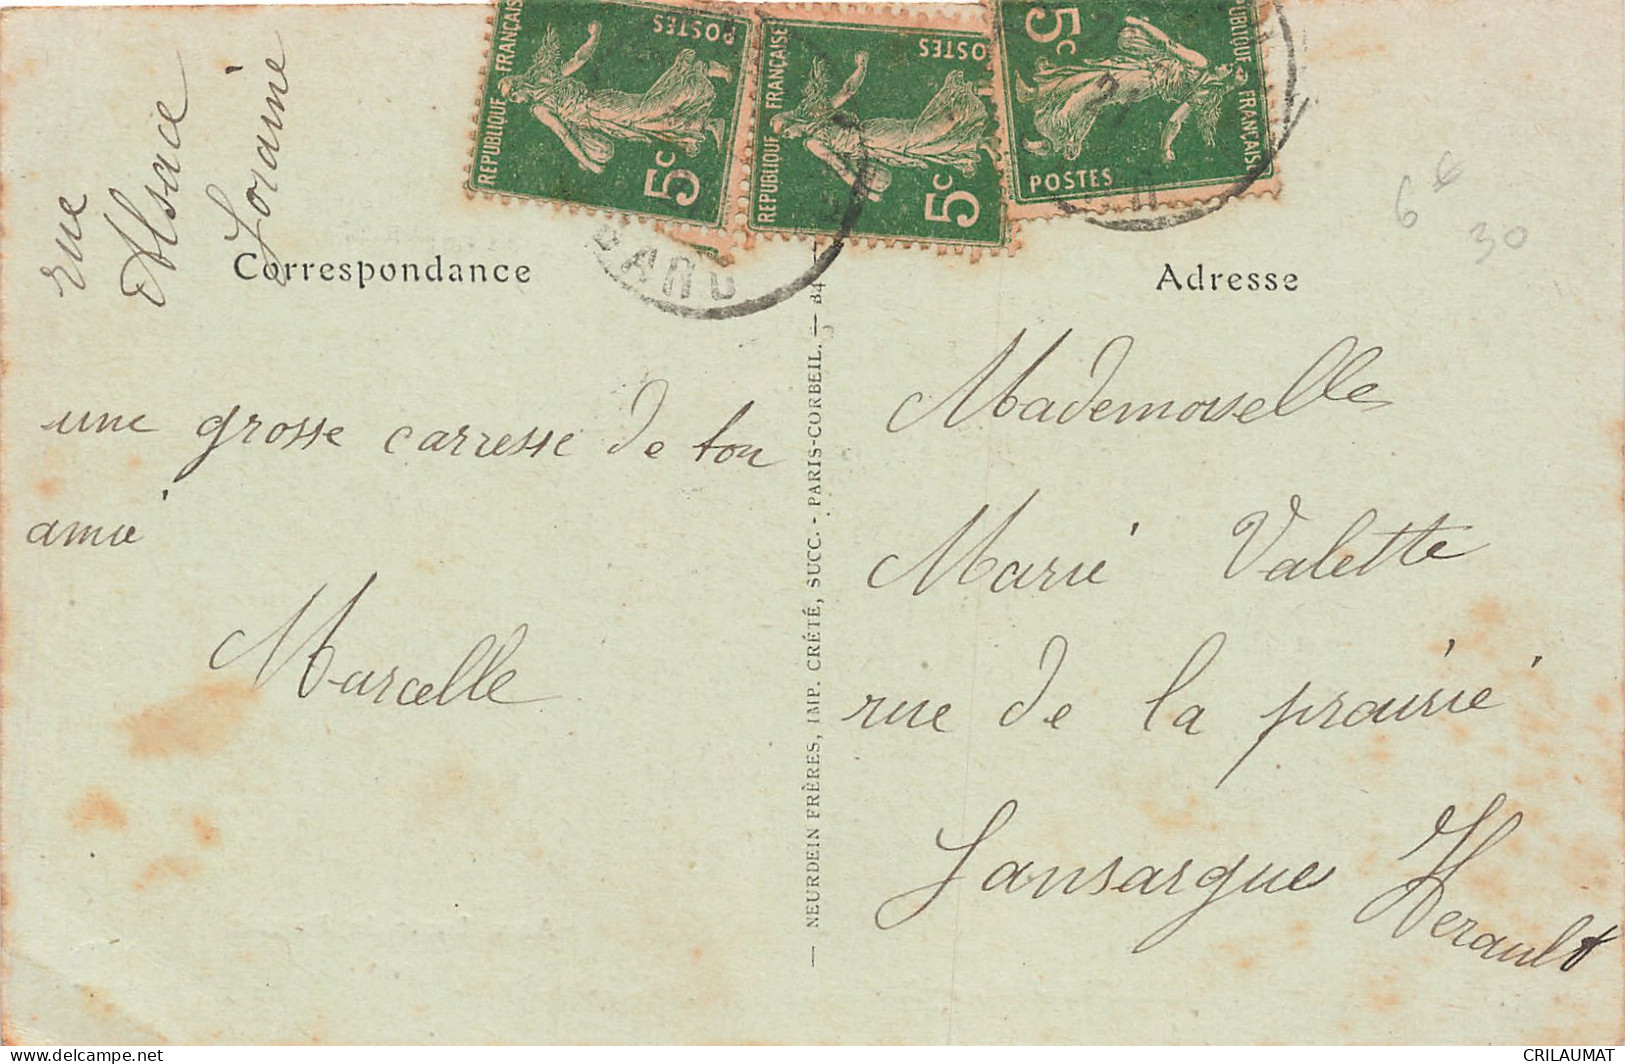 rue
Alsace
Loraine
REPUBLIQUE FRANÇAISE
POSTES
5c
REPUBLIQUE FRANÇAISE
POSTES
5c
REPUBLIQUE FRANÇAISE
POSTES
5c
6€
30
Correspondance
une grosse carresse de ton
amie
Marcelle
— NEURDEIN FRÈRES, IMP. CRÉTÉ, SUCC. - PARIS-CORBEIL. — 84 —
Adresse
Mademoiselle
Marie Valette
rue de la prairie
Lansargue Herault
CRILAUMAT